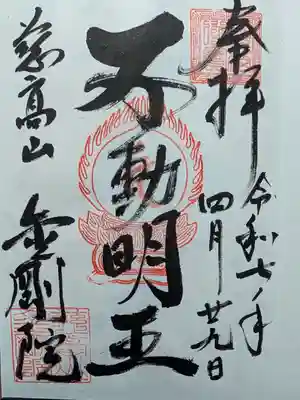 奉拝
令和七年
四月廿九日
不動明王
高山
金剛院